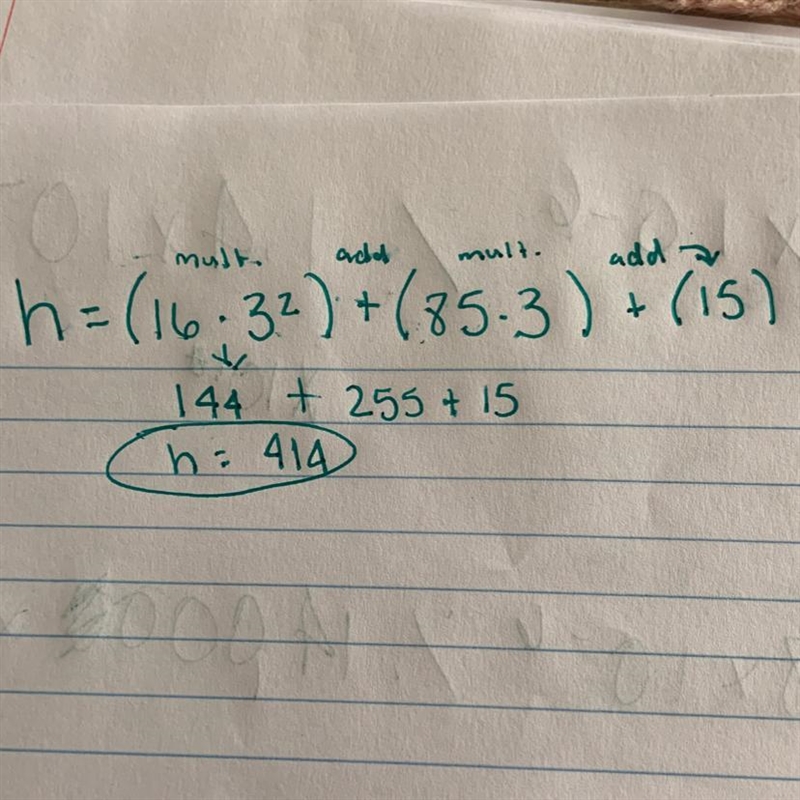 mult. add mult. add →
h = (16 · 3²) + (85 · 3) + (15)
↓
144 + 255 + 15
h = 414